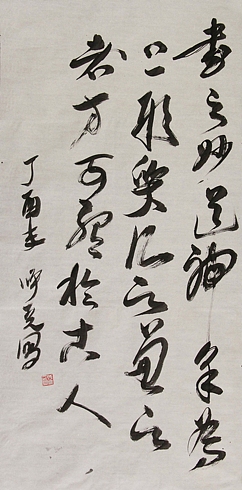 書之妙道神彩為
上形質次之兼之
者方可紹於古人
丁酉年